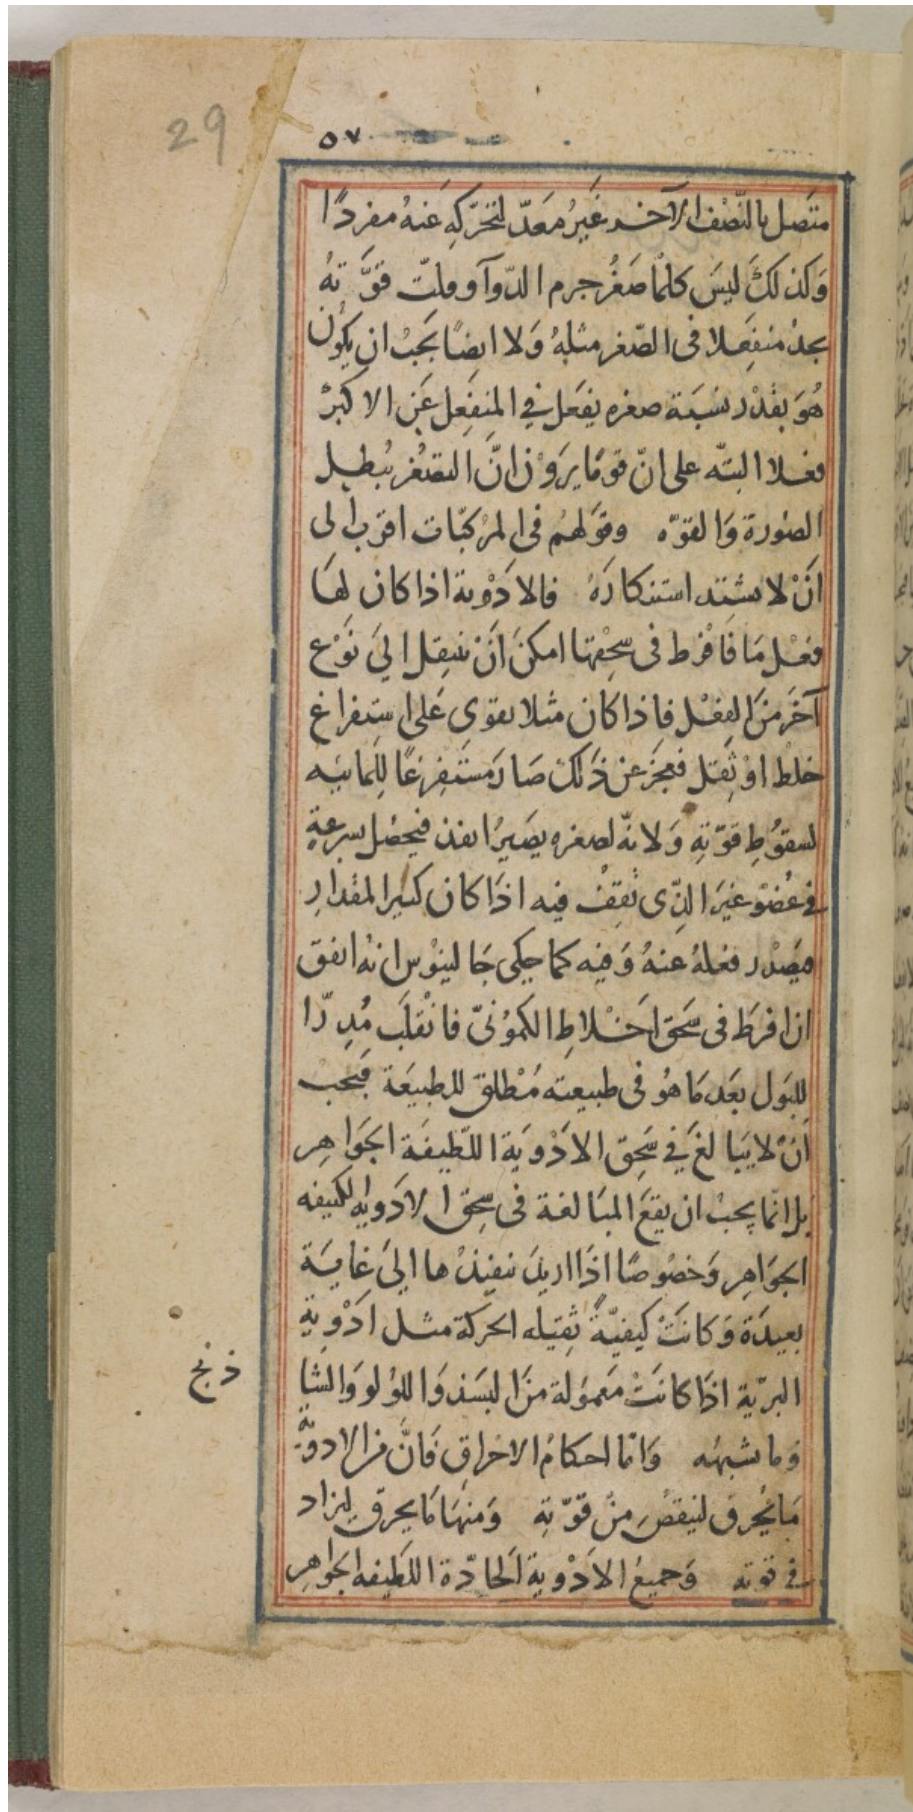 29
٥٧
متصل بالنّصف الآخر غَيرُ مُعَدّ لتحرّكهِ عَنهُ مفردًا
وَكذلكَ ليسَ كلّما صَغُر جرم الدّوآ وقلّت قوَّتهُ
يجدُ منفَعِلا فى الصّغر مثلهُ وَلا ايضًا يَجبُ ان يكُون
هُوَ بقدْر نسَبَة صغره يفعَل فِي المنفَعِل عَن الاكبرْ
فعلا البتّه على انّ قومًا يَرَوْن انَّ التصّغُر يُبطِل
الصّورة وَالقوّه وقوَلهُم فى المرُكبّات اقرب الى
انَنْ لا يشتد استنكارَهُ فالادَوْية اذا كان لهَا
فعْل مَا فَافْرط فى سَحِقها امكنَ اَنْ ينتِقل اليَ نَوْع
آخَرَ مَن الفِعْل فاذا كان مثلا يقوى عَلى استفراغ
خلط اوْ ثفِل فعَجزَ عن ذَلكْ صَارَ مسَتَفِرغًا للِمَائيّه
لسقوُطِ قوّتهِ وَلانّه لصغره يصَيرُ انفذ فيحصُل بسرعةٍ
فى عُضوْ غيرَ الذّى تَقِفُ فيه اذَا كان كبيرا لمقدارِ
فيَصْدر فعلهُ عنهُ وَفيه كما حكى جَالينوُس انهُ اتفق
ان افرَط فى سَحَق اَخْلاطِ الكموُنىّ فانقلَب مُدِرّا
للبَول بعَد مَا هوُ فى طبيعته مُطلق للطبيعَة فيَجبْ
اَنْ لا يَبالغَ في سَحِق الادَوْيَة اللّطيفَة الجَوَاهِر
بل انّما يجبُ ان يقعَ المبَالغة فى سحِق الادَويه الكثيفه
الجوَاهِر وَخصُوصًا اذَا اريدَ تنفيذْها اليَ غايَة
بعيدَة وَكانَتْ كيفيّةً ثِقيله الحركة مثل ادَوْيةِ
البريّة اذَا كانَتْ مَعموَلة منَ البسَذ وَاللوُلو وَالشا
ذنج
وَما يشبهُه وَامّا احكامُ الاحْراقِ فَانَّ من الادويَة
مَا يُحرق لينقصَُ منْ قوّتهِ وَمنهَا مَا يحرق ليزاد
فى قوته وَجميعُ الادَوْية الحَادّة اللّطيفه الجواهِر